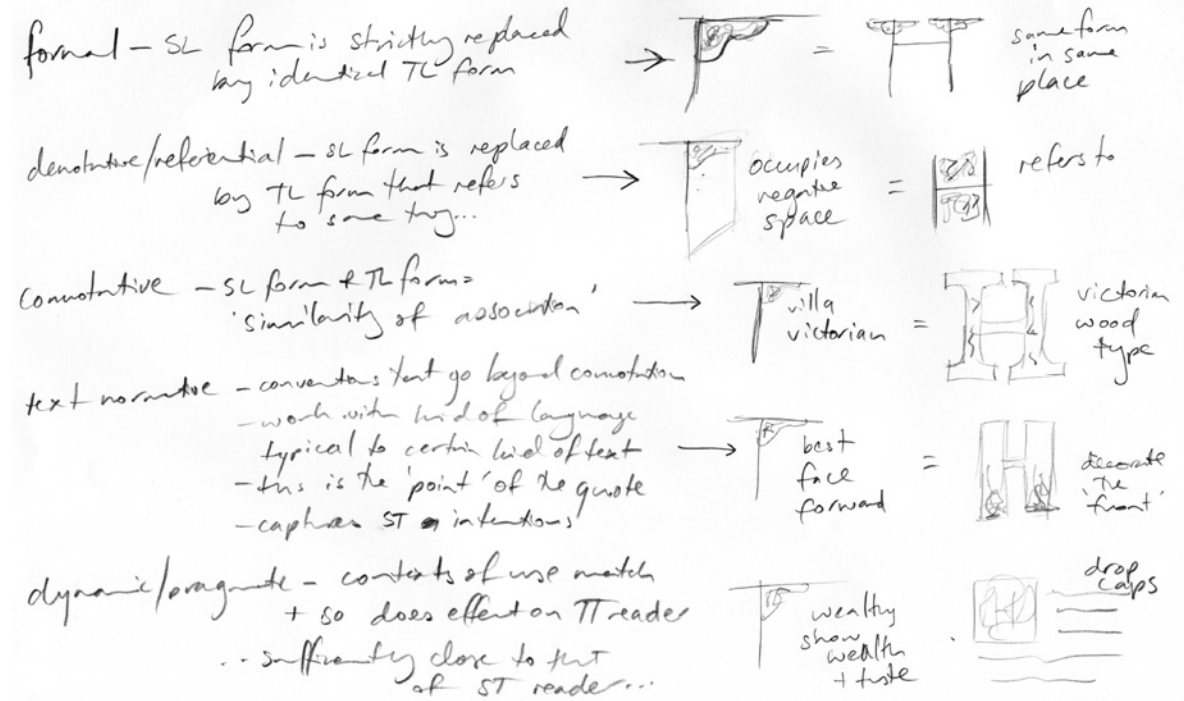 formal – SL form is strictly replaced
by identical TL form
→
=
same form
in same
place
denotative/referential – SL form is replaced
by TL form that refers
to same thing...
→
occupies
negative
space
=
refers to
connotative – SL form + TL form =
'similarity of association'
→
villa
victorian
=
victorian
wood
type
text normative – conventions that go beyond connotation
– work with kind of language
typical to certain kind of text
– this is the 'point' of the quote
– captures ST intentions
→
best
face
forward
=
H
decorate
the
'front'
dynamic/pragmatic – contexts of use match
+ so does effect on TT reader
.. sufficiently close to that
of ST reader...
wealthy
show
wealth
+ taste
drop
caps